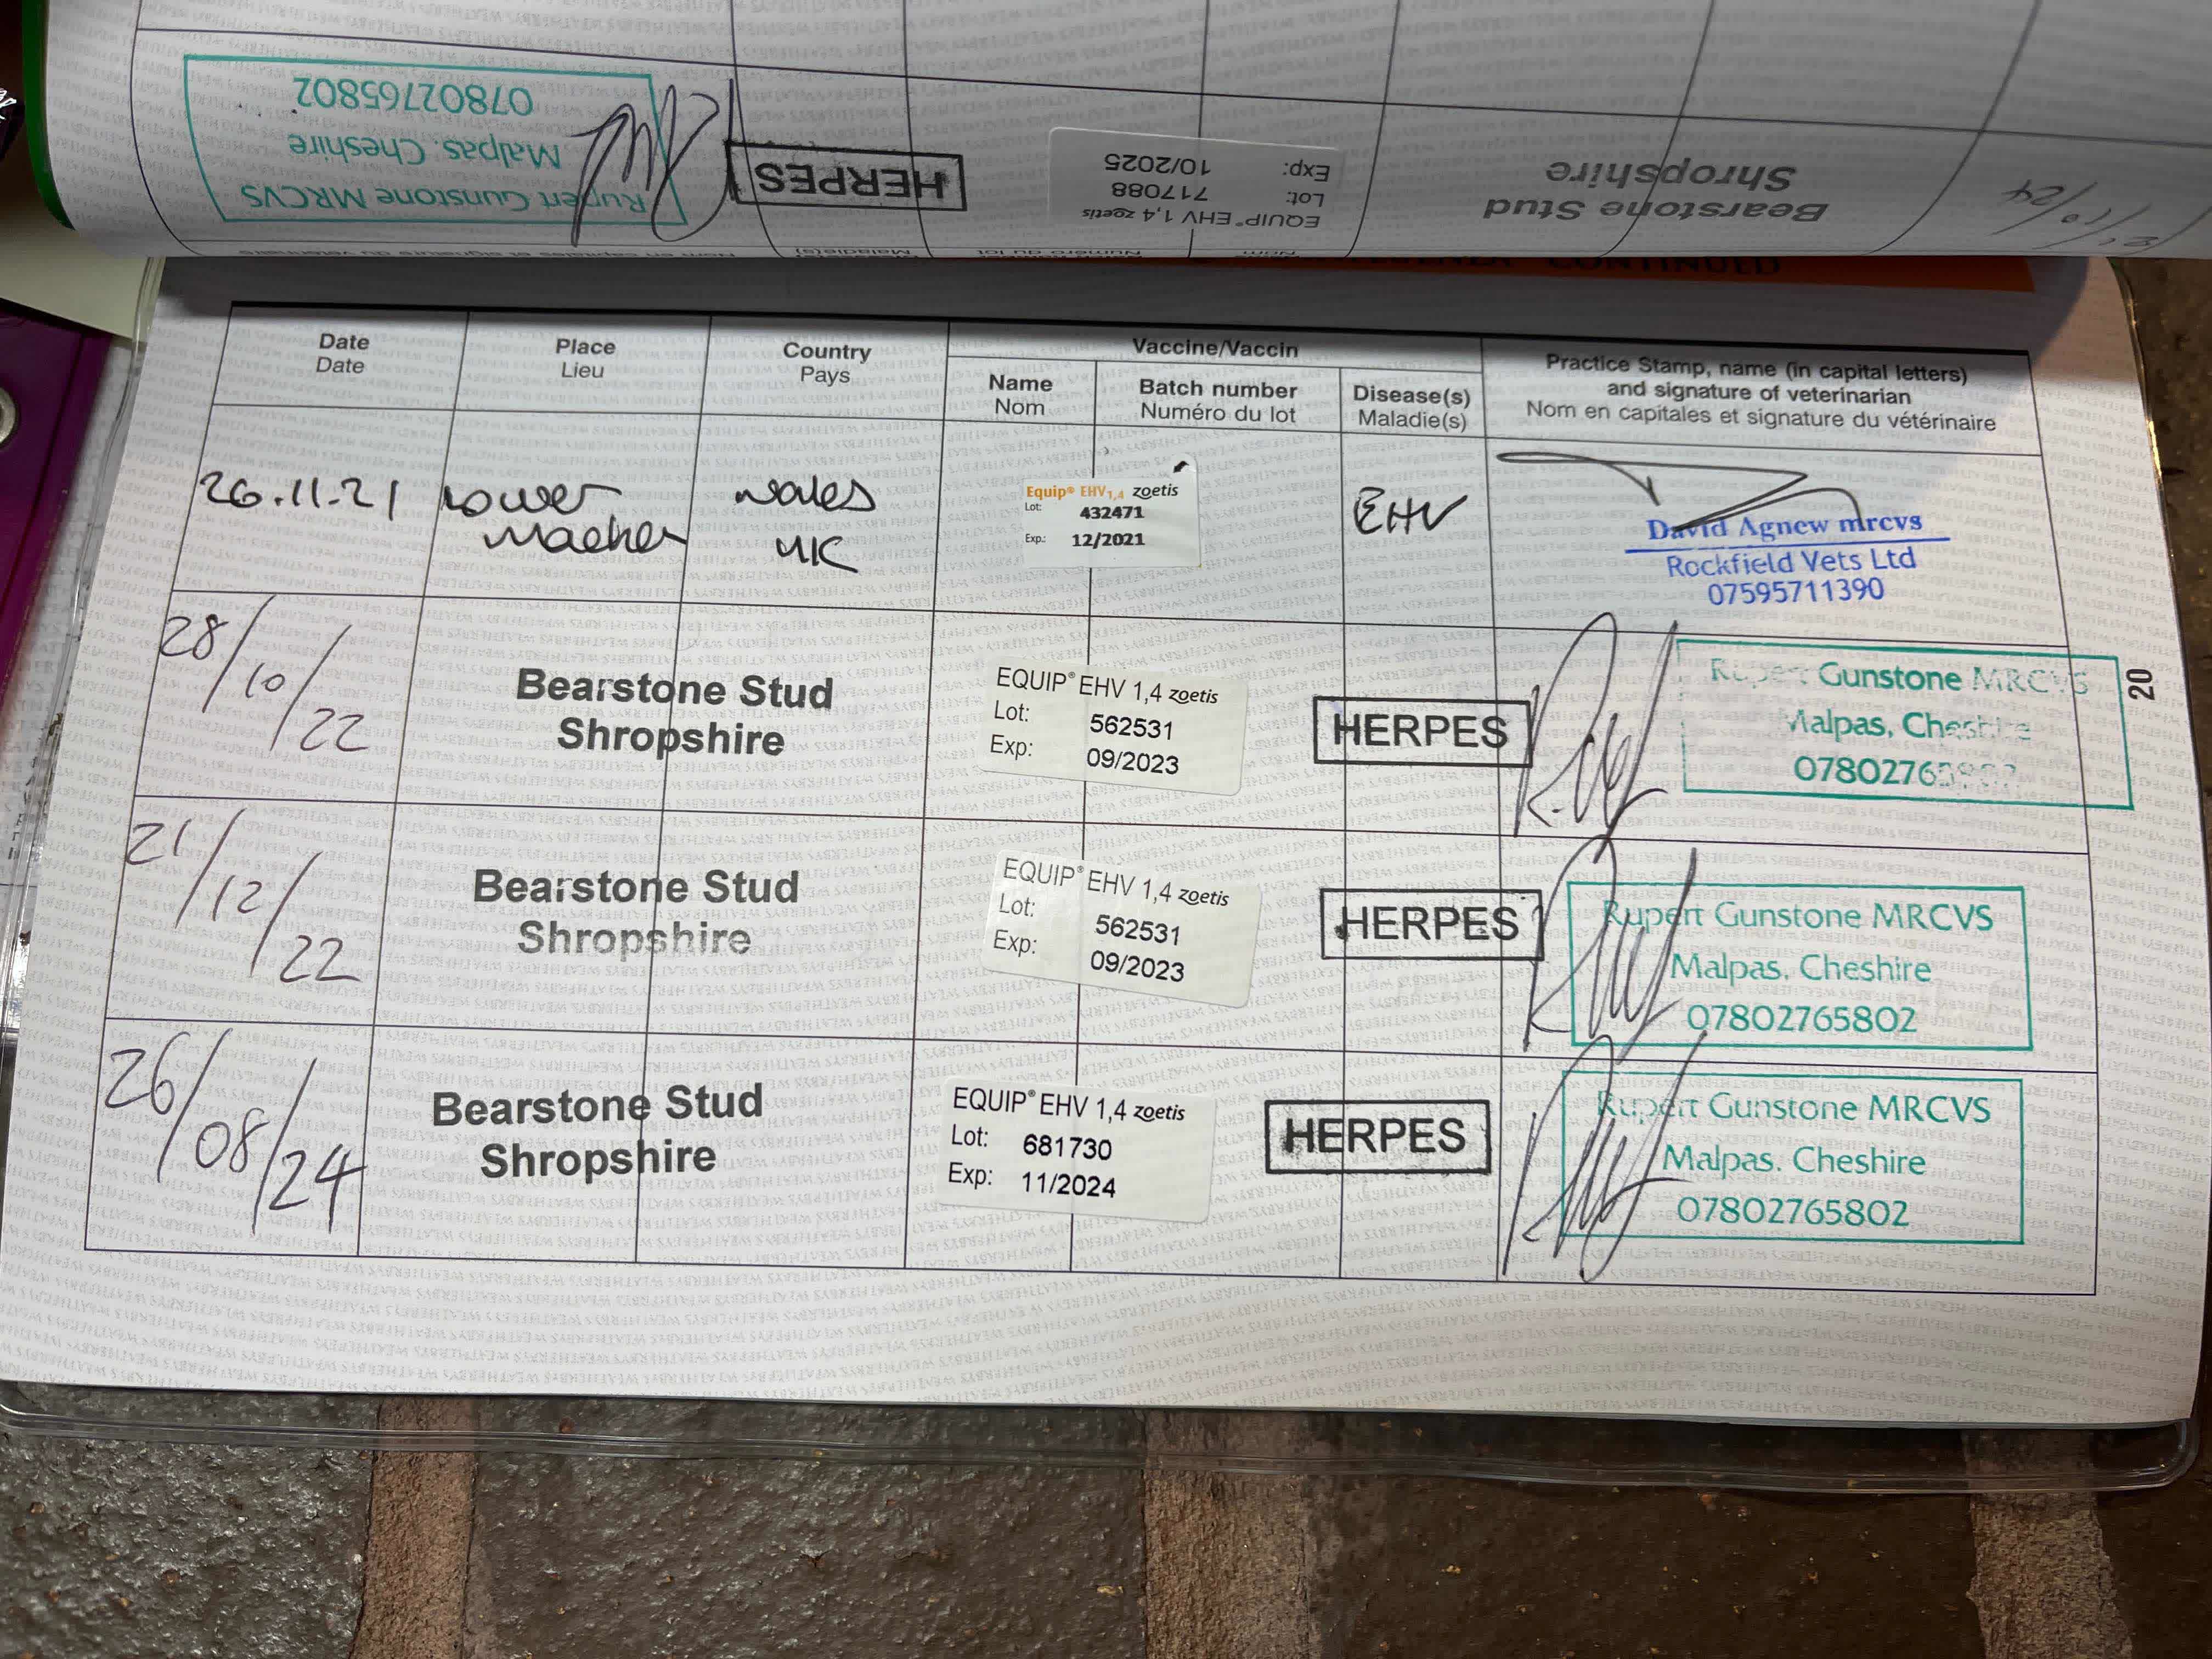 Rupert Gunstone MRCVS
Malpas. Cheshire
07802765802
HERPES
EQUIP® EHV 1,4 zoetis
Lot: 717088
Exp: 10/2025
Bearstone Stud
Shropshire
/10/24
CONTINUED
Date
Date
Place
Lieu
Country
Pays
Vaccine/Vaccin
Name
Nom
Batch number
Numéro du lot
Disease(s)
Maladie(s)
Practice Stamp, name (in capital letters)
and signature of veterinarian
Nom en capitales et signature du vétérinaire
26.11.21
Lower
Machen
Wales
UK
Equip® EHV1,4 zoetis
Lot: 432471
Exp.: 12/2021
EHV
David Agnew mrcvs
Rockfield Vets Ltd
07595711390
28/10/22
Bearstone Stud
Shropshire
EQUIP® EHV 1,4 zoetis
Lot: 562531
Exp: 09/2023
HERPES
Rupert Gunstone MRCVS
Malpas, Cheshire
07802765802
20
21/12/22
Bearstone Stud
Shropshire
EQUIP® EHV 1,4 zoetis
Lot: 562531
Exp: 09/2023
HERPES
Rupert Gunstone MRCVS
Malpas. Cheshire
07802765802
26/08/24
Bearstone Stud
Shropshire
EQUIP® EHV 1,4 zoetis
Lot: 681730
Exp: 11/2024
HERPES
Rupert Gunstone MRCVS
Malpas. Cheshire
07802765802